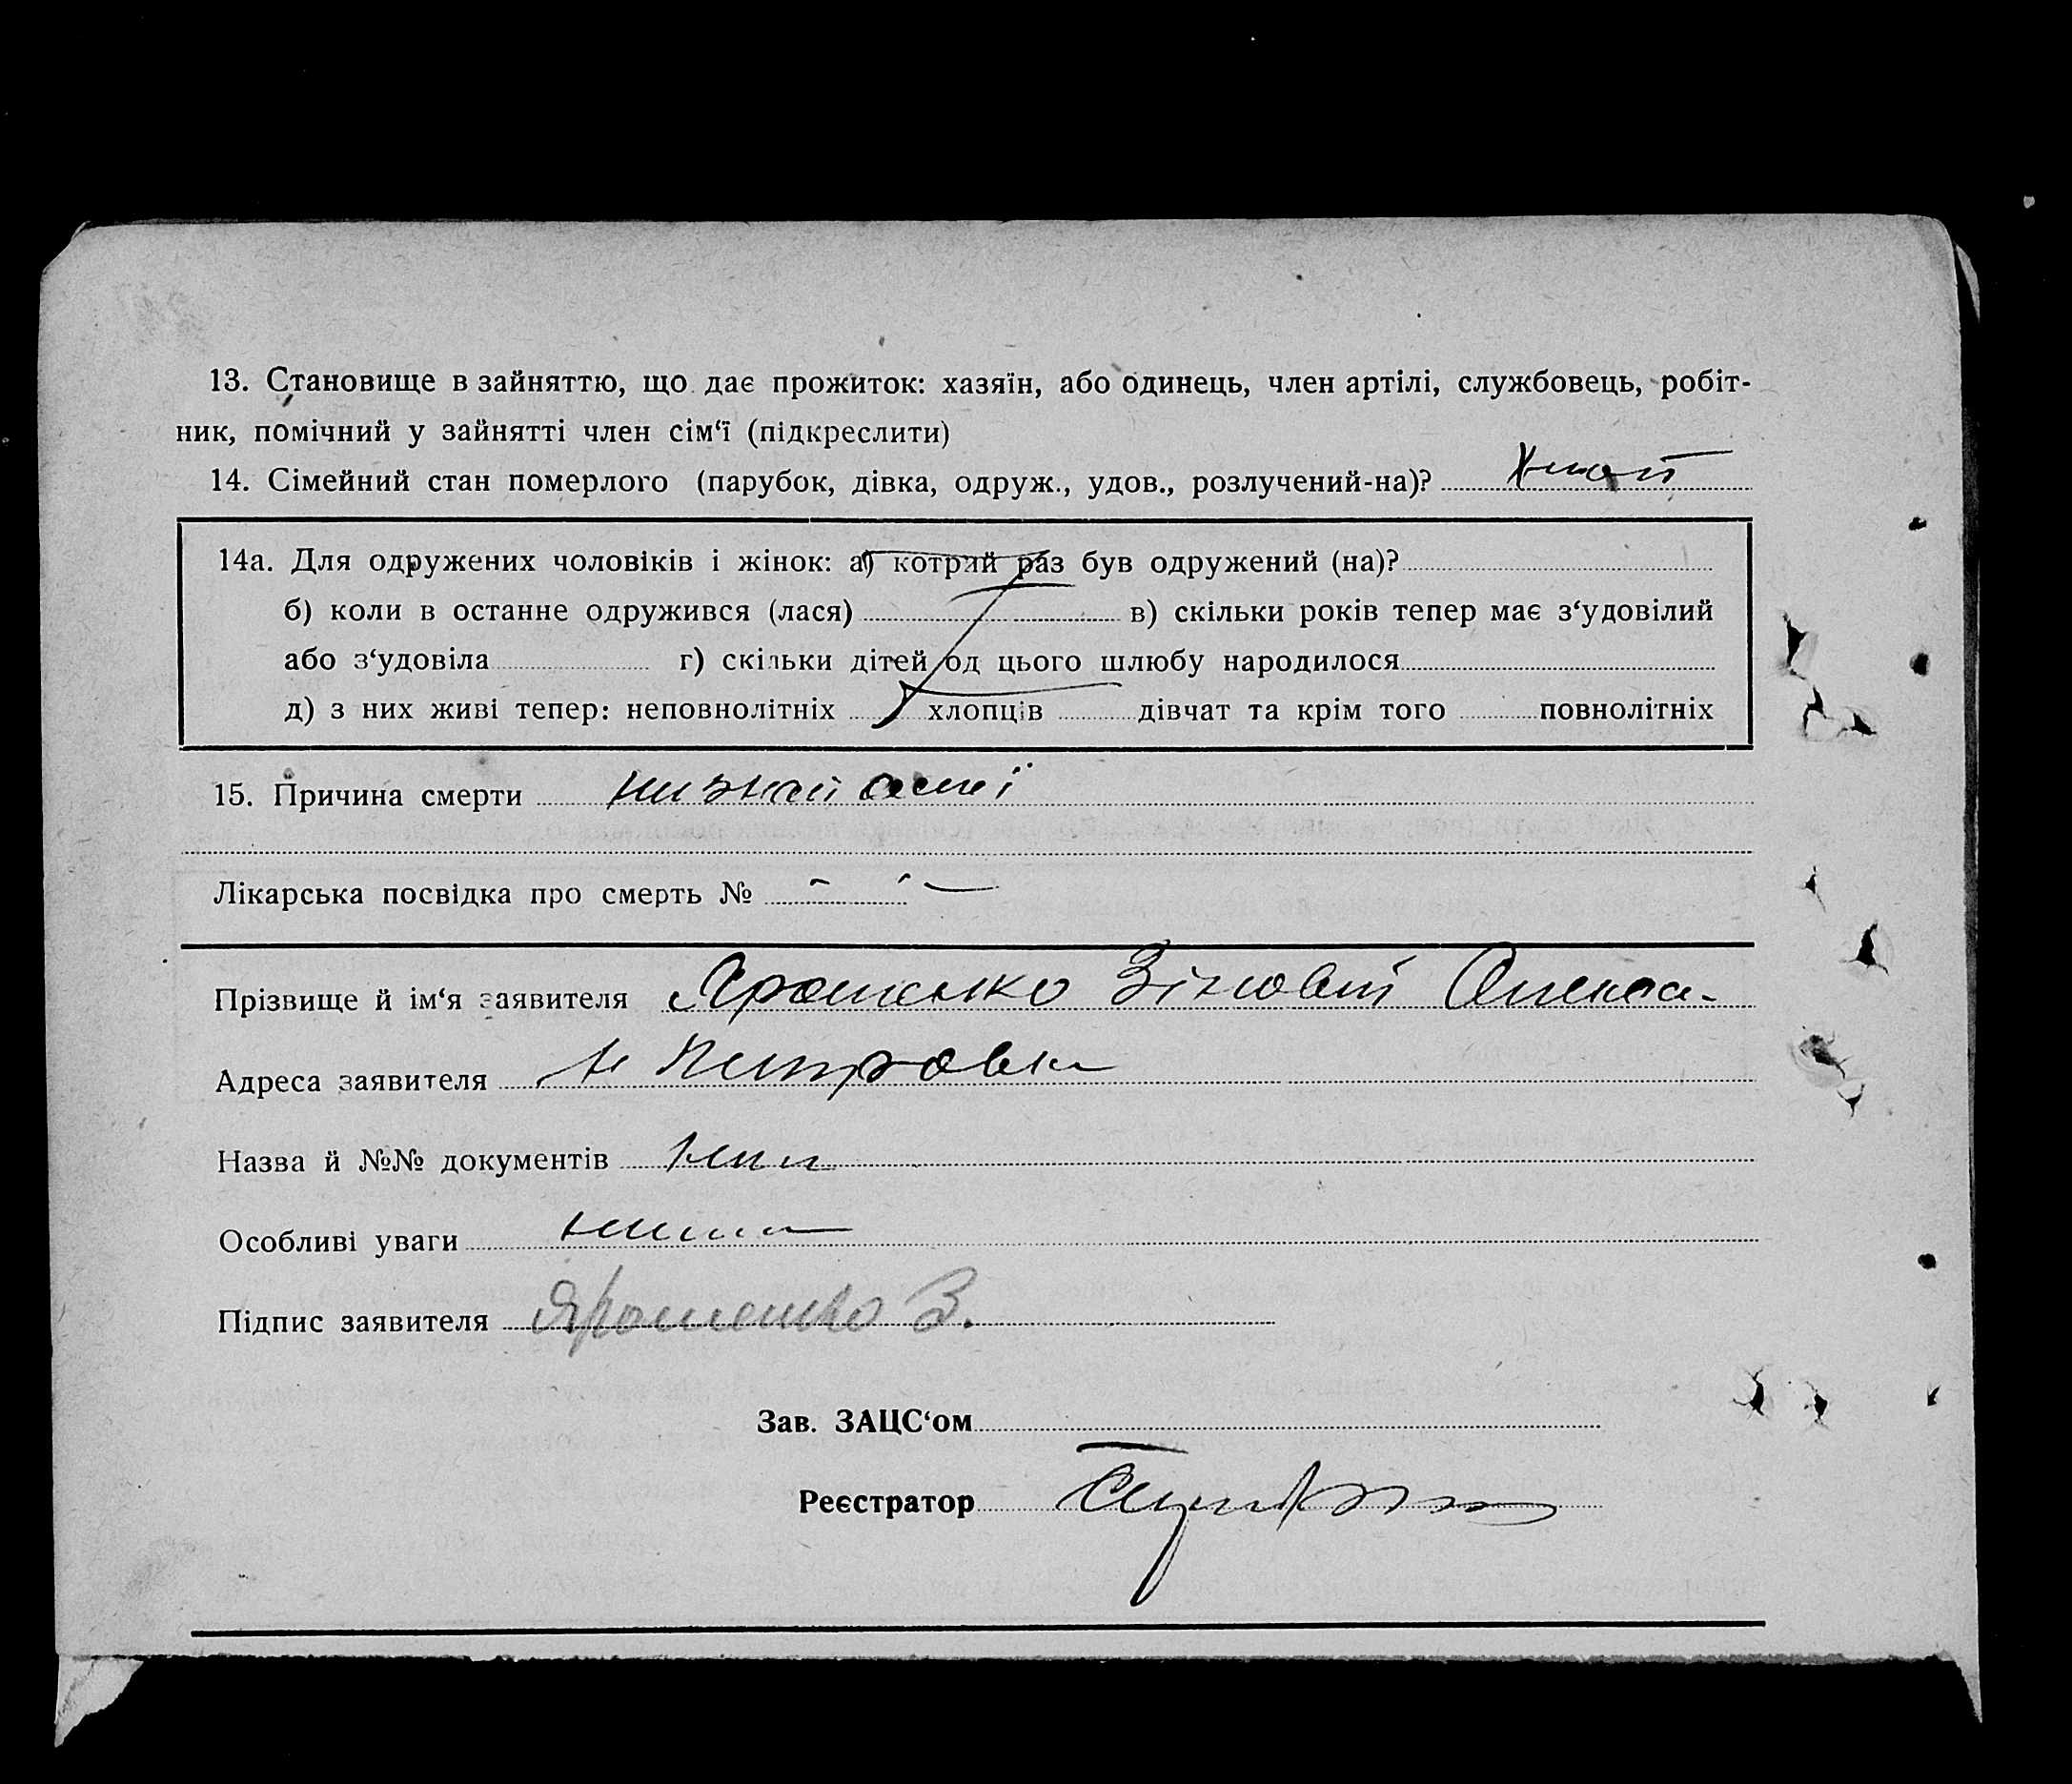 13. Становище в зайняттю, що дає прожиток: хазяїн, або одинець, член артілі, службовець, робіт-
ник, помічний у зайнятті член сім‘ї (підкреслити)
14. Сімейний стан померлого (парубок, дівка, одруж., удов., розлучений-на)?
14а. Для одружених чоловіків і жінок: а) котрий раз був одружений (на)?
б) коли в останне одружився (лася) в) скільки років тепер має з‘удовілий
або з‘удовіла г) скільки дітей од цього шлюбу народилося
д) з них живі тепер: неповнолітніх хлопців дівчат та крім того повнолітніх
15. Причина смерти
Лікарська посвідка про смерть №
Прізвище й ім‘я заявителя Ярошенко Зіновій
Адреса заявителя Петровка
Назва й №№ документів нима
Особливі уваги нима
Підпис заявителя Ярошенко З.
Зав. ЗАЦС‘ом
Реєстратор